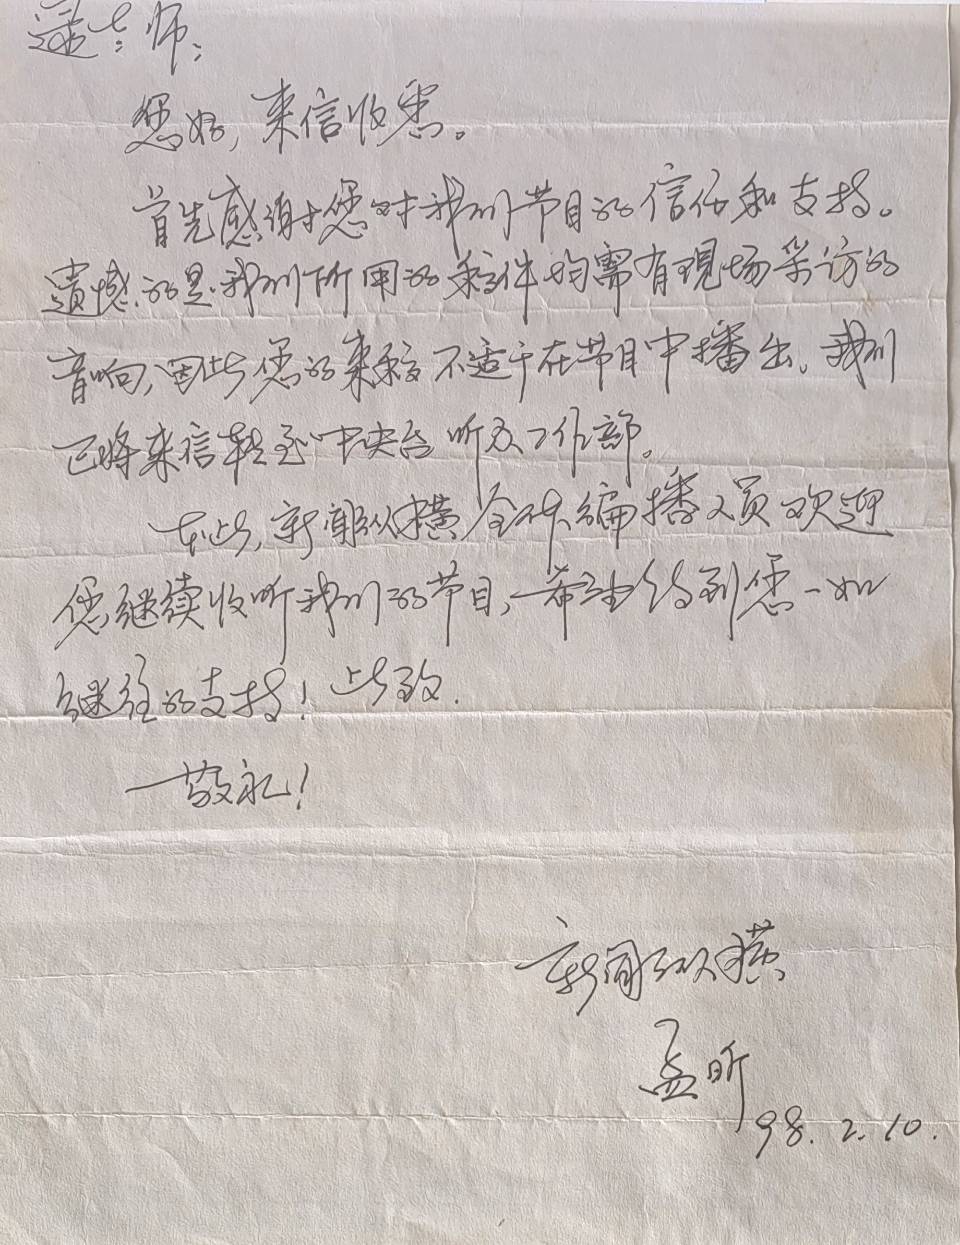 师：
您好，来信收悉。
首先感谢您对我们节目的信任和支持。
遗憾的是，我们所用的稿件均需有现场采访的
音响，因此您的来稿不适于在节目中播出。我们
已将来信转至中央台听众工作部。
在此，新闻纵横全体编播人员欢迎
您继续收听我们的节目，希望得到您一如
继往的支持！此致
敬礼！
新闻纵横
孟昕
98.2.10.